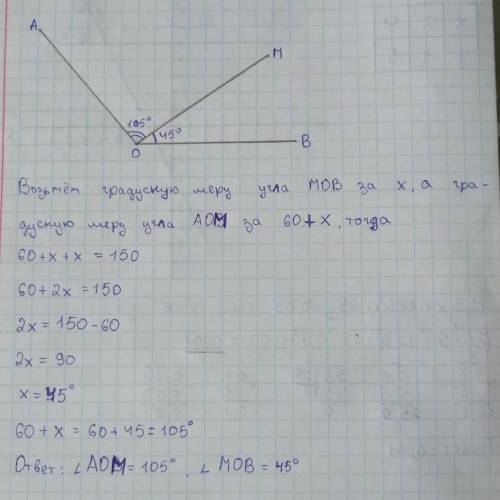 A
M
105°
45°
O
B
Возьмём градусную меру угла MOB за x, а гра-
дусную меру угла AOM за 60+x, тогда
60+x+x = 150
60+2x = 150
2x = 150-60
2x = 90
x = 45°
60+x = 60+45=105°
Ответ: ∠AOM = 105°, ∠MOB = 45°